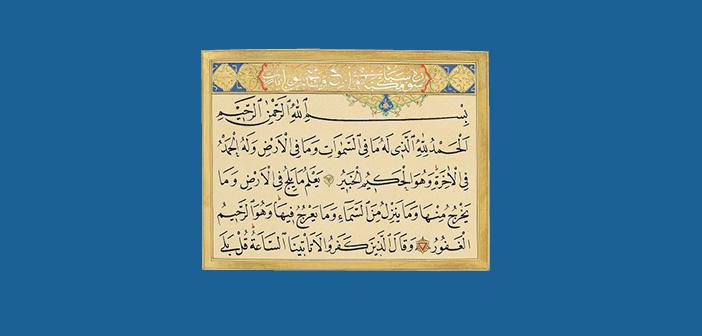 بِسْمِ اللّٰهِ الرَّحْمٰنِ الرَّحِيمِ
اَلْحَمْدُ لِلّٰهِ الَّذٖى لَهُ مَا فِى السَّمٰوَاتِ وَمَا فِى الْاَرْضِ وَلَهُ الْحَمْدُ
فِى الْاٰخِرَةِ وَهُوَ الْحَكٖيمُ الْخَبٖيرُ يَعْلَمُ مَا يَلِجُ فِى الْاَرْضِ وَمَا
يَخْرُجُ مِنْهَا وَمَا يَنْزِلُ مِنَ السَّمَاءِ وَمَا يَعْرُجُ فٖيهَا وَهُوَ الرَّحٖيمُ
الْغَفُورُ وَقَالَ الَّذٖينَ كَفَرُوا لَا تَاْتٖينَا السَّاعَةُ قُلْ بَلٰى